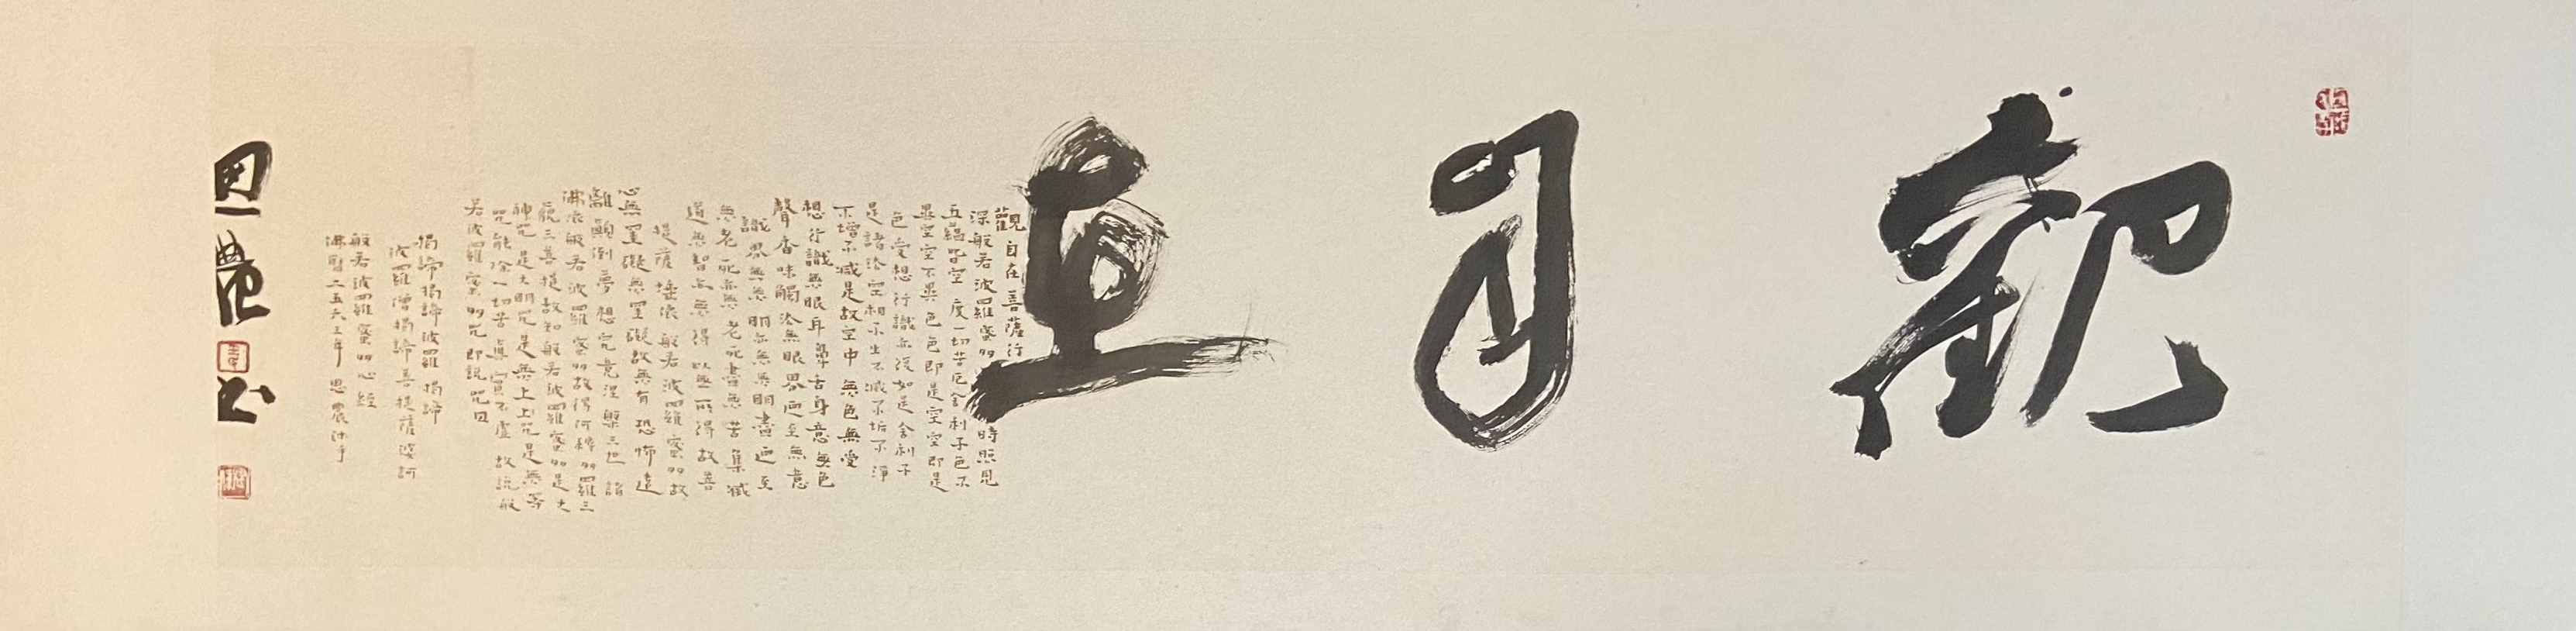 觀自在
觀自在菩薩行
深般若波羅蜜多時照見
五蘊皆空度一切苦厄舍利子色不
異空空不異色色即是空空即是
色受想行識亦復如是舍利子
是諸法空相不生不滅不垢不淨
不增不減是故空中無色無受
想行識無眼耳鼻舌身意無色
聲香味觸法無眼界迺至無意
識界無無明亦無無明盡迺至
無老死亦無老死盡無苦集滅
道無智亦無得以無所得故菩
提薩埵依般若波羅蜜多故
心無罣礙無罣礙故無有恐怖遠
離顛倒夢想究竟涅槃三世諸
佛依般若波羅蜜多故得阿耨多羅三
藐三菩提故知般若波羅蜜多是大
神咒是大明咒是無上咒是無等
咒能除一切苦真實不虛故說般
若波羅蜜多咒即說咒曰
揭諦揭諦波羅揭諦
波羅僧揭諦菩提薩婆訶
般若波羅蜜多心經
佛曆二五六三年 思農沐手
思農書